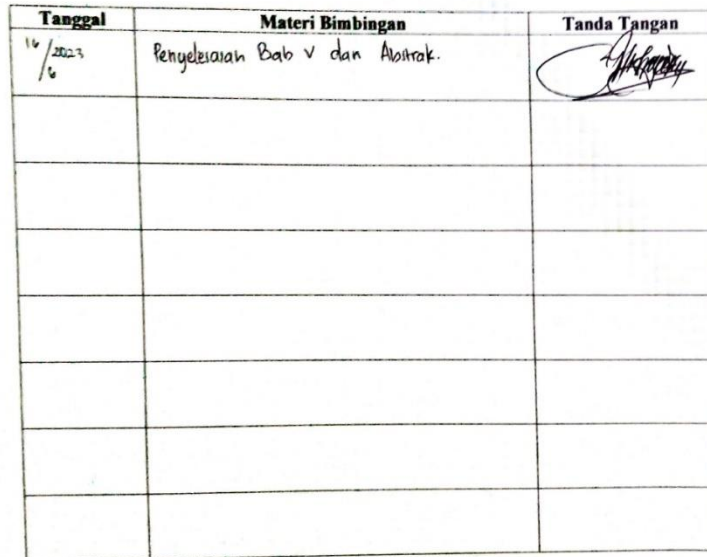 Tanggal Materi Bimbingan Tanda Tangan
16/6 2023 Penyelesaian Bab V dan Abstrak.